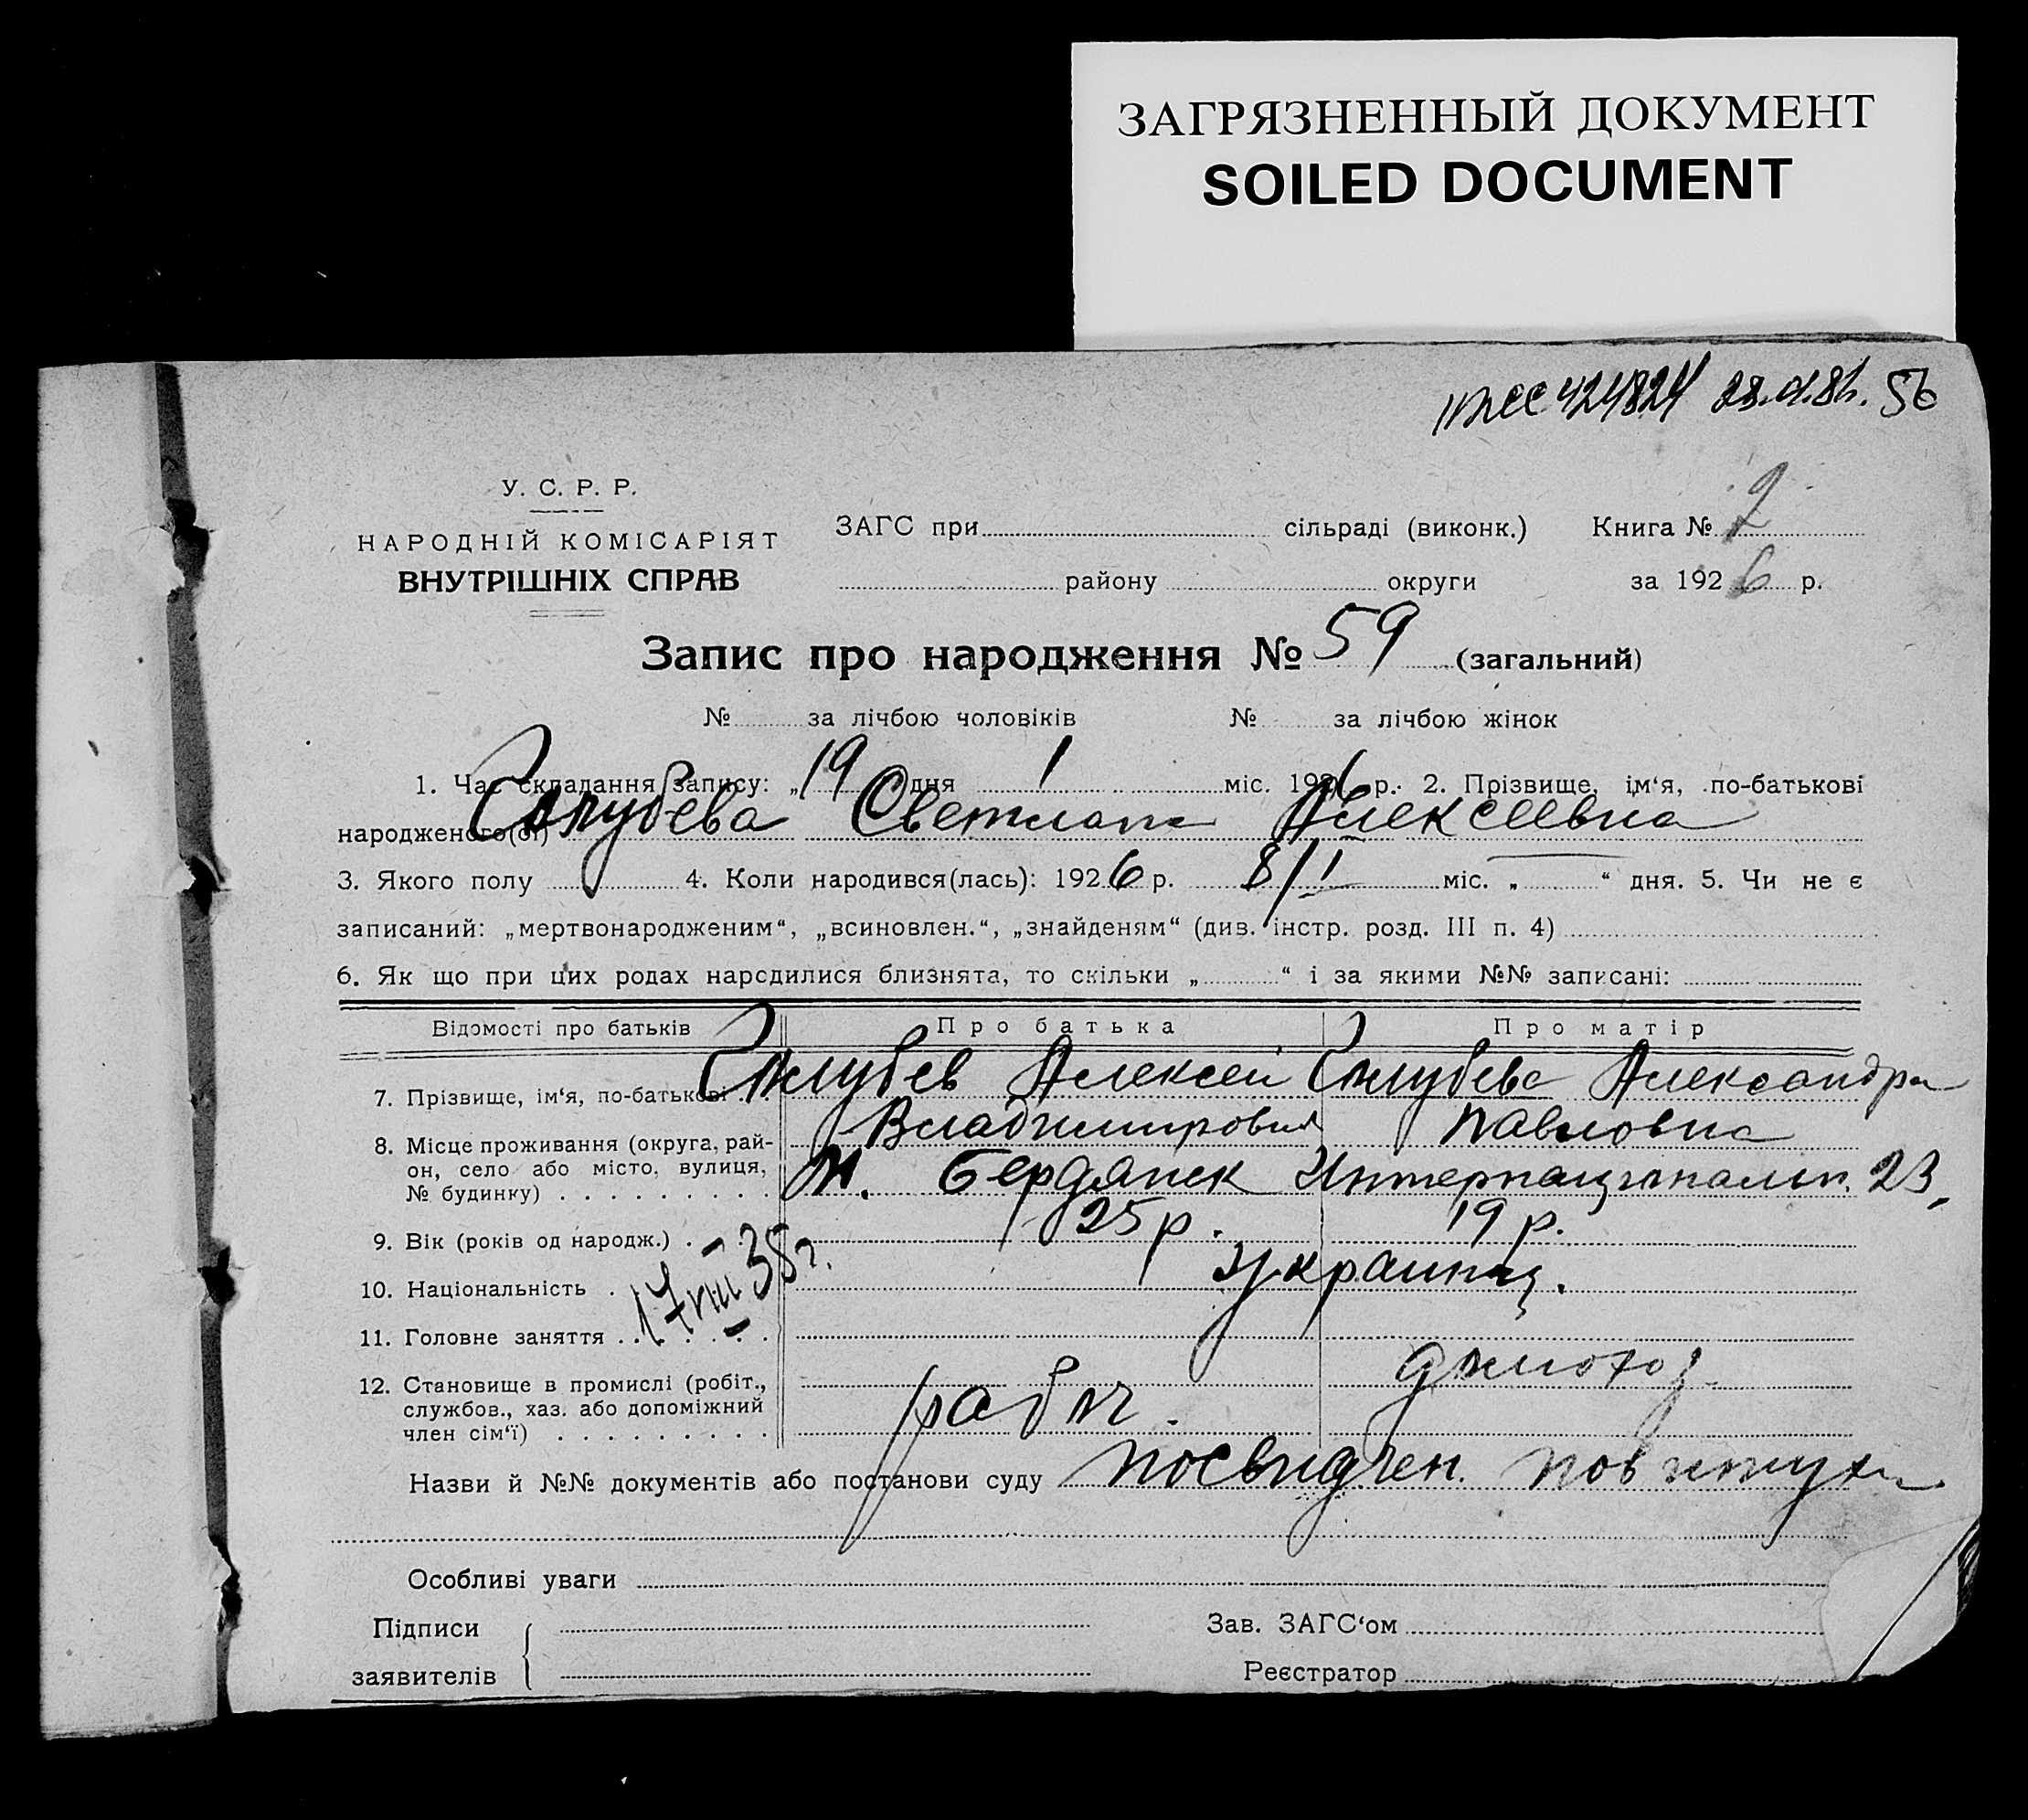 ЗАГРЯЗНЕННЫЙ ДОКУМЕНТ
SOILED DOCUMENT
424824 56
У. С. Р. Р.
НАРОДНІЙ КОМІСАРІЯТ
ВНУТРІШНІХ СПРАВ
ЗАГС при сільраді (виконк.) Книга № 2
району округи за 1926 р.
Запис про народження № 59 (загальний)
№ за лічбою чоловіків № за лічбою жінок
1. Час складання запису: „19 дня 1 міс. 1926 р. 2. Прізвище, ім‘я, по-батькові
народженого(ої) Голубева Светлана Алексеевна
3. Якого полу 4. Коли народився(лась): 1926 р. 8/I міс. „ “ дня. 5. Чи не є
записаний: „мертвонародженим“, „всиновлен.“, „знайденям“ (див. інстр. розд. III п. 4)
6. Як що при цих родах народилися близнята, то скільки „ “ і за якими №№ записані:
Відомості про батьків Про батька Про матір
7. Прізвище, ім‘я, по-батькові Голубев Алексей Голубева Александра
Владимирович Павловна
8. Місце проживання (округа, рай-
он, село або місто, вулиця,
№ будинку) М. Бердянск Интернациональн. 23,
9. Вік (років од народж.) 25 р. 19 р.
10. Національність украинц.
17 VIII 38 г.
11. Головне заняття
12. Становище в промислі (робіт.,
службов., хаз. або допоміжний
член сім‘ї) рабоч. домохоз.
Назви й №№ документів або постанови суду посвидчен. повитухи
Особливі уваги
Підписи
заявителів
Зав. ЗАГС‘ом
Реєстратор